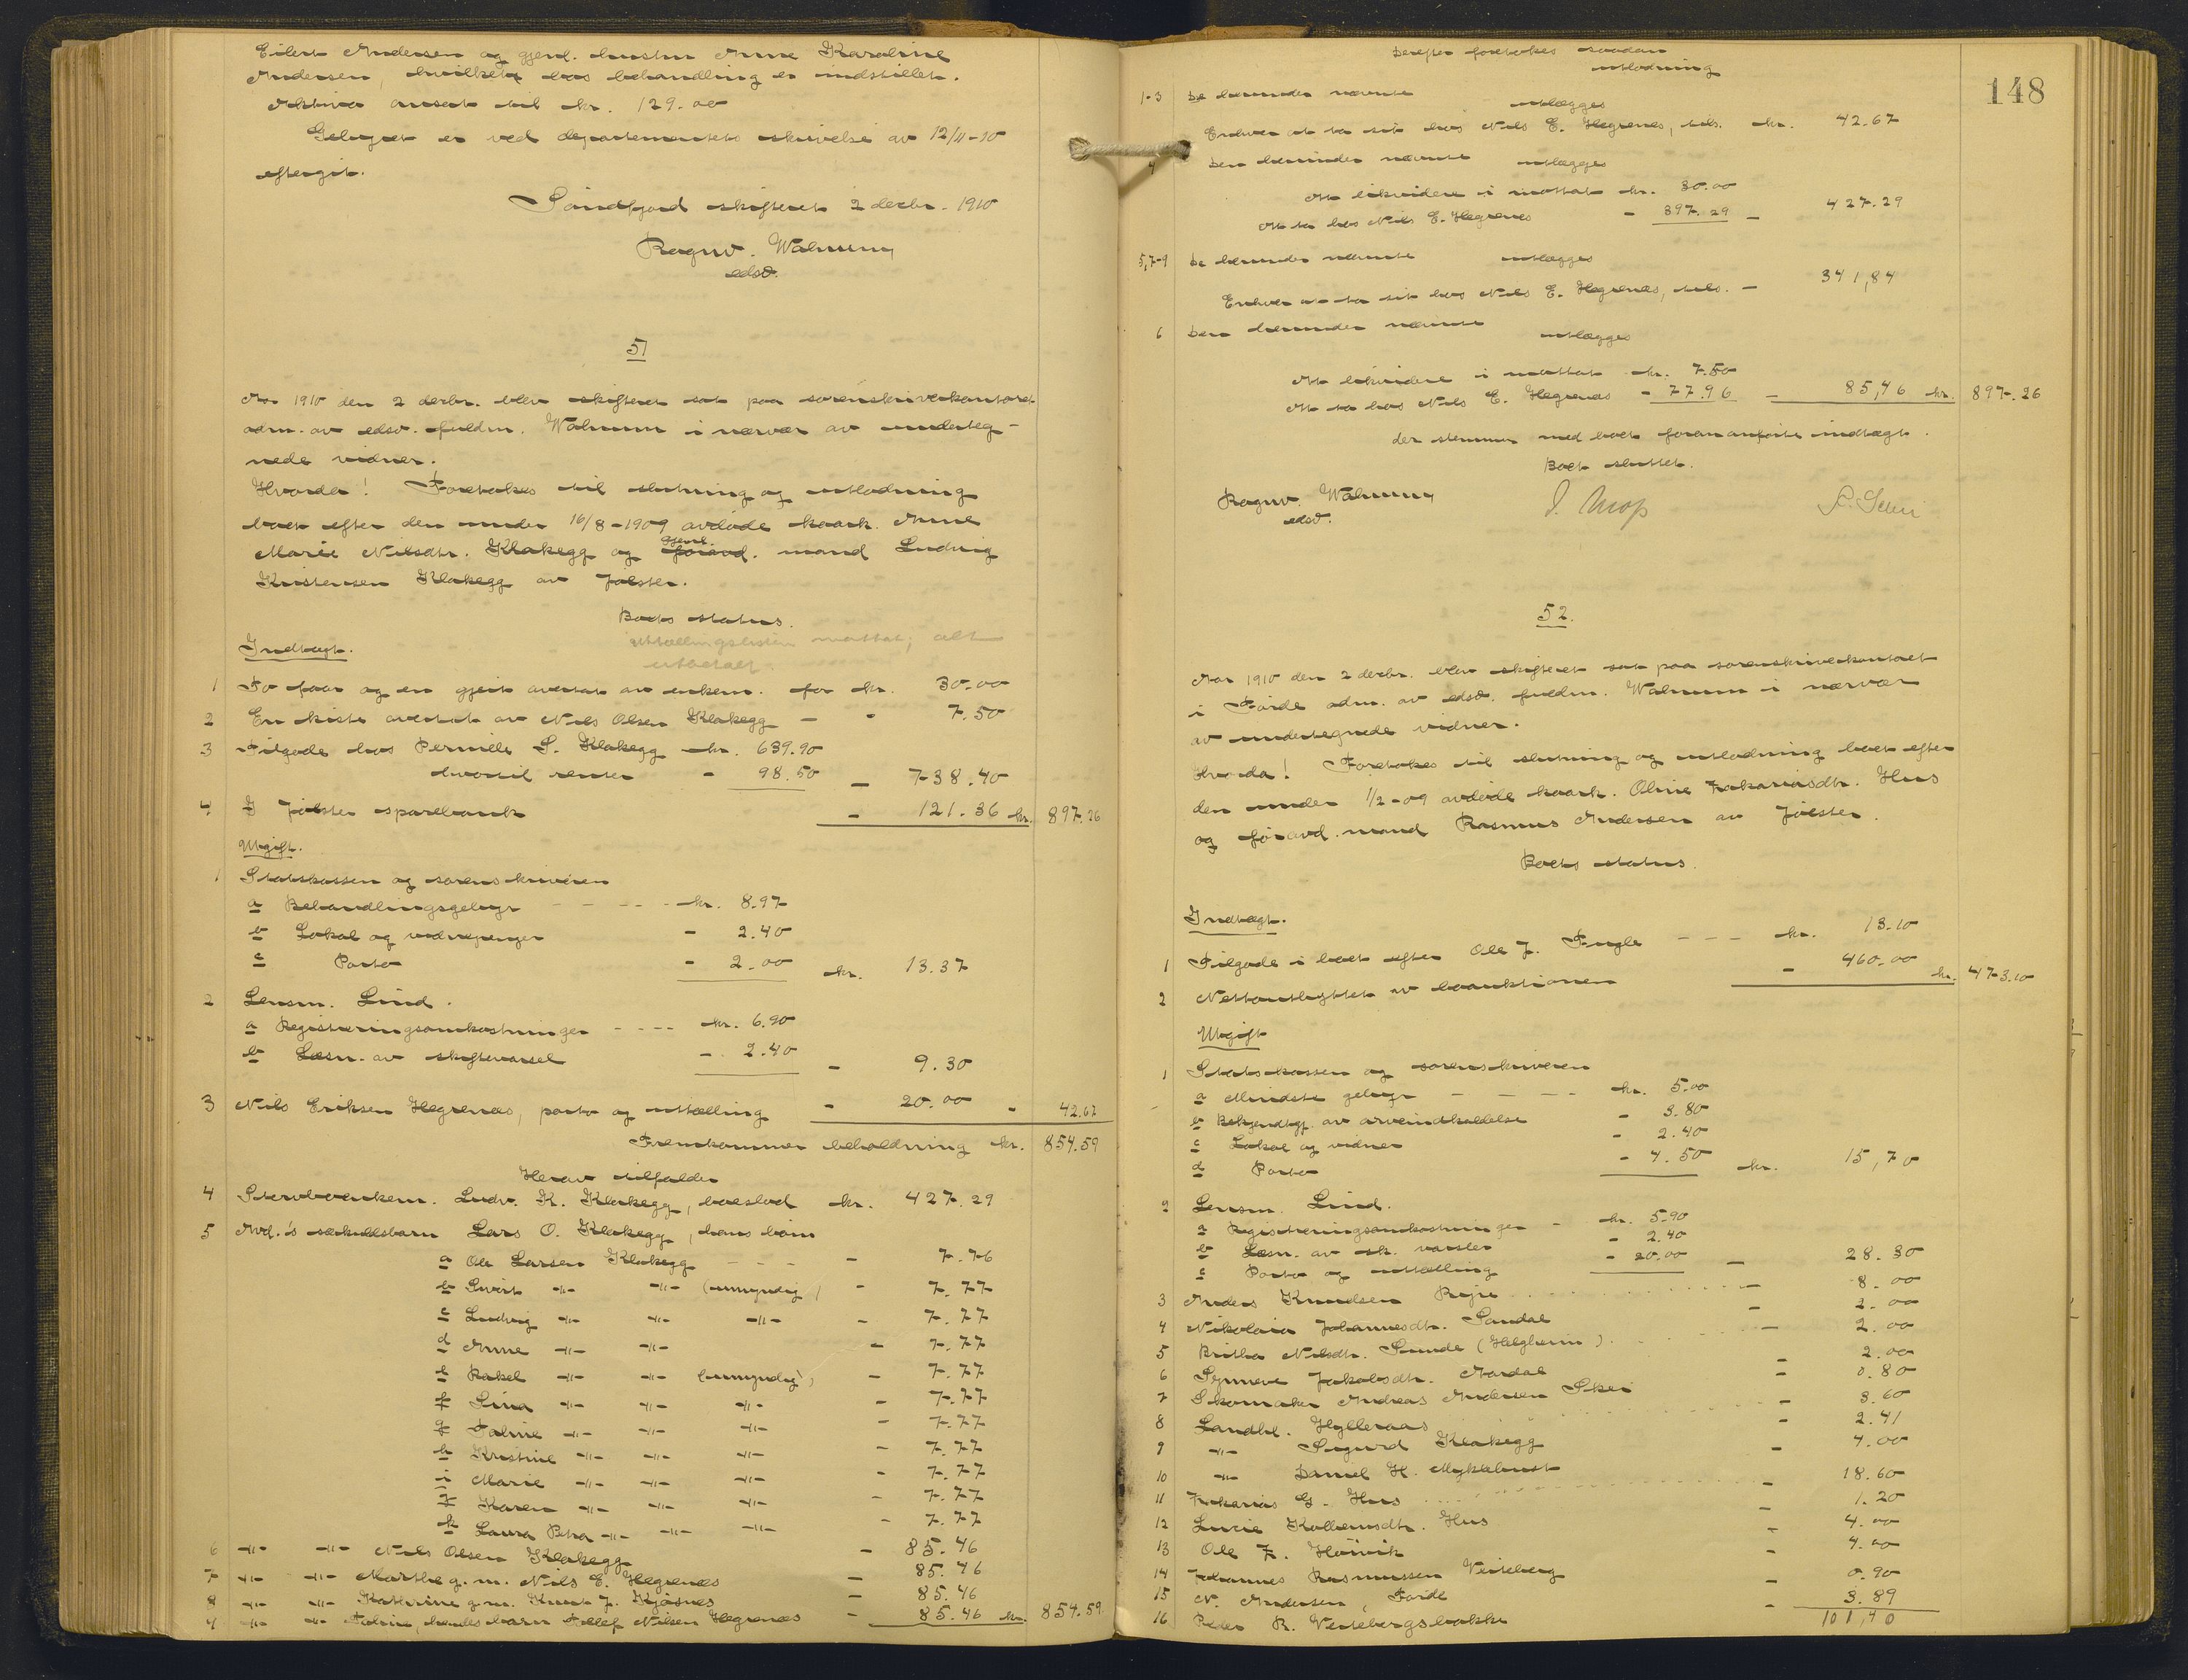 Eilert Andersen og gjenl. hustru Anne Karoline
Andersen, hvilket bos behandling er indstillet.
Aktiva ansat til kr. 129.00
Gebyret er ved departementets skrivelse av 12/11-10
eftergit.
Søndfjord skifteret 2 decbr. 1910
Ragnv. Walnum
edsv.
51
Aar 1910 den 2 decbr. blev skifteret sat paa sorenskriverkontoret
adm. av edsv. fuldm. Walnum i nærvær av underteg-
nede vidner.
Hvorda! Foretokes til slutning og utlodning
boet efter den under 16/8-1909 avdøde kaark. Anne
Marie Nilsdtr. Klakegg og gjenl. foravd. mand Ludvig
Kristensen Klakegg av Jølster.
Boets status.
uttællingslisten mottat, alt
utbetalt.
Indtægt.
1 To faar og en gjeit overtat av enkem. for kr. 30.00
2 En kiste overtat av Nils Olsen Klakegg - - 7.50
3 Tilgode hos Pernille S. Klakegg kr. 639.90
hvortil renter - 98.50 - 738.40
4 I Jølster sparebank - 121.36 kr. 897.26
Utgift.
1 Statskassen og sorenskriveren
a Behandlingsgebyr - - - - kr. 8.97
b Lokal og vidnepenger - 2.40
c Porto - 2.00 kr. 13.37
2 Lensm. Lind.
a Registreringsomkostninger - - - - kr. 6.90
b Læsn. av skiftevarsel - 2.40 - 9.30
3 Nils Eriksen Hegrenæs, porto og uttælling - 20.00 - 42.67
Fremkommer beholdning kr. 854.59
Herav tilfalder
4 Stervboenkem. Ludv. K. Klakegg, boeslod kr. 427.29
5 Avd.'s søskendebarn Lars O. Klakegg, hans børn
a Ole Larsen Klakegg - - - - 7.76
b Sivert -"- -"- (umyndig) - 7.77
c Ludvig -"- -"- -"- - 7.77
d Anne -"- -"- - 7.77
e Rakel -"- -"- (umyndig) - 7.77
f Lina -"- -"- -"- - 7.77
g Taline -"- -"- -"- - 7.77
h Kristine -"- -"- -"- - 7.77
i Marie -"- -"- -"- - 7.77
j Karen -"- -"- -"- - 7.77
k Laura Petra -"- -"- -"- - 7.77
6 -"- -"- Nils Olsen Klakegg - 85.46
7 -"- -"- Marthe g. m. Nils E. Hegrenæs - 85.46
8 -"- -"- Kathrine g. m. Knut J. Kjøsnes - 85.46
9 -"- -"- hendes barn Nilsen Hegrenæs - 85.46 kr. 854.59
148
Derefter foretokes saadan
utlodning
1-3 De herunder nævnte
utlægges
Enhver at ta sit hos Nils E. Hegrenes, tils. kr. 42.67
4 Den herunder nævnte utlægges
At likvidere i mottat kr. 30.00
At ta hos Nils E. Hegrenes - 397.29 - 427.29
5,7-9 De herunder nævnte utlægges
Enhver at ta sit hos Nils E. Hegrenæs, tils. - 341,84
6 Den herunder nævnte
utlægges
At likvidere i mottat kr. 7.50
At ta hos Nils E. Hegrenæs - 77.96 - 85,46 kr. 897.26
der stemmer med boets foran anførte indtægt.
Boet sluttet.
Ragnv. Walnum
edsv.
52.
Aar 1910 den 2 decbr. blev skifteret sat paa sorenskriverkontoret
i Førde adm. av edsv. fuldm. Walnum i nærvær
av undertegnede vidner.
Hvorda! Foretokes til slutning og utlodning boet efter
den under 1/2-09 avdøde kaark. Oline Zakariasdtr. Hus
og føravd. mand Rasmus Andersen av Jølster.
Boets status.
Indtægt.
1 Tilgode i boet efter Ole J. Fugle - - - kr. 13.10
2 Nettoutbyttet av boauktionen - 460.00 kr. 473.10
Utgift
1 Statskassen og sorenskriveren
a Mindste gebyr - - - - kr. 5.00
b Bekjendtgj. av arveindkaldelse - 3.80
c Lokal og vidner - 2.40
d Porto - 4.50 kr. 15,70
2 Lensm. Lind.
a Registreringsomkostninger - kr. 5.90
b Læsn. av sk. varsler - 2.40
c Porto og uttælling - 20.00 - 28.30
3 Anders Knudsen - 8.00
4 Nikolaia Johannesdtr. Sandal - 2.00
5 Britha Nilsdtr. Sunde (Helgheim) - 2.00
6 Synneve Jakobsdtr. Aardal - 2.00
7 Skomaker Andreas Andersen Skei - 0.80
8 Landhl. Hylleraas - 3.60
9 -"- Sigurd Klakegg - 2.41
10 -"- Daniel H. Myklebust - 4.00
11 Zakarias G. Hus - 18.60
12 Lucie Kolbensdtr. Hus - 1.20
13 Ole Z. Høivik - 4.00
14 Johannes Rasmussen Veiteberg - 4.00
15 N. Andersen, Førde - 0.90
16 Peder R. Veitebergsbakke - 3.89
101,40